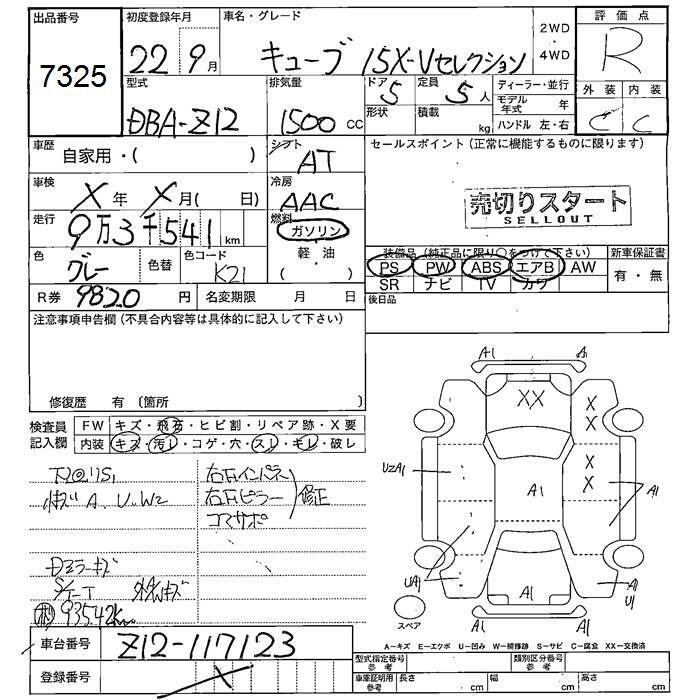 出品番号
7325
初度登録年月
22 9月
車名・グレード
キューブ 15X-Vセレクション
2WD
・
4WD
評価点
R
型式
DBA-Z12
排気量
1500 CC
ドア
5
形状
定員
5人
積載
kg
ディーラー・並行
モデル年式 年
ハンドル 左・右
外装
C
内装
C
車歴
自家用・( )
シフト
AT
セールスポイント(正常に機能するものに限ります)
売切りスタート
SELLOUT
車検
X年 X月( 日)
冷房
AAC
走行
9万3千541km
燃料
ガソリン
軽・油
( )
色
グレー
色替
色コード
K21
装備品(純正品に限り○をつけて下さい)
PS PW ABS エアB AW
SR ナビ TV カワ
新車保証書
有・無
R券 9820 円
名変期限 月 日
後日品
注意事項申告欄(不具合内容等は具体的に記入して下さい)
修復歴 有(箇所 )
検査員
記入欄
FW キズ・飛石・ヒビ割・リペア跡・X要
内装 キズ・汚レ・コゲ・穴・スレ・キレ・破レ
A、U、W2
右Fインパネ
右Fピラー
コアサポ
修正
Dミラーキズ
93542km
A1 A1
XX
X
X
X
X
U2A1
A1
A1
UA1
A1
U1
A1 A1
スペア
A-キズ E-エクボ U-凹み W-補修跡 S-サビ C-腐食 XX-交換済
車台番号
Z12-117123
登録番号
X
型式指定番号
参考
類別区分番号
参考
車庫証明用
参考
長さ cm
幅 cm
高さ cm